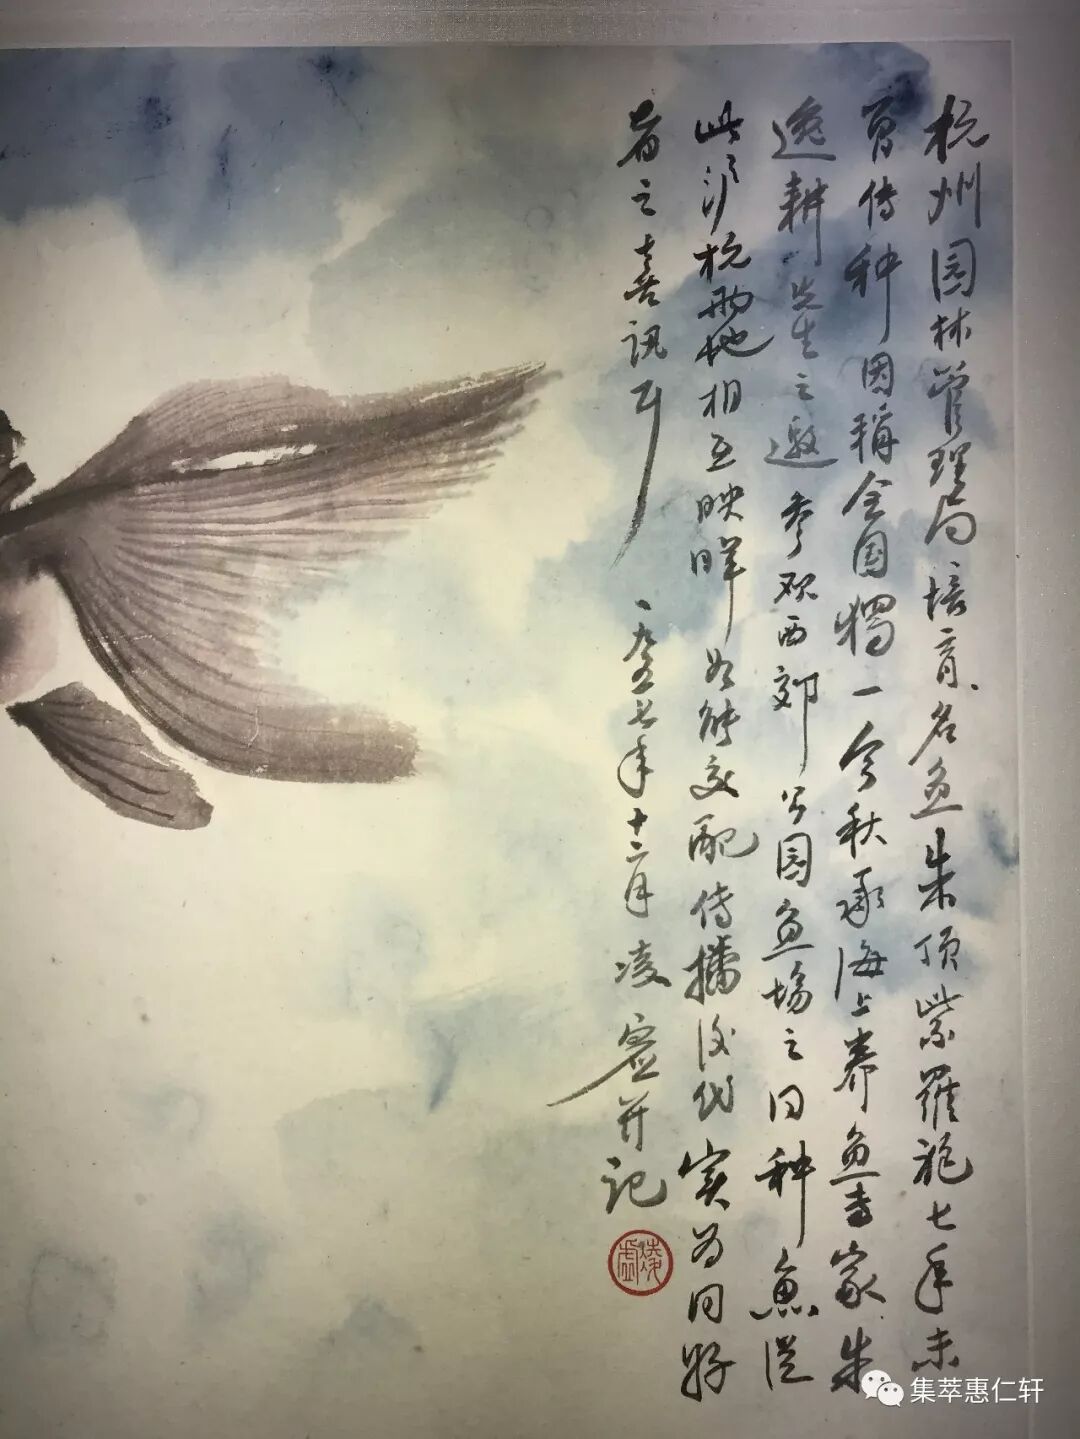 杭州园林管理局培育名鱼朱顶紫罗袍七年未
曾传种因稱全国獨一今秋承海上养鱼专家朱
逸耕先生之邀参观西郊公园鱼塲之日种魚従
此沪杭两地相互映晖如能交配传播後代实为同好
者之喜訊耳 一九五七年十二月凌虚并记
凌虚
集萃惠仁轩